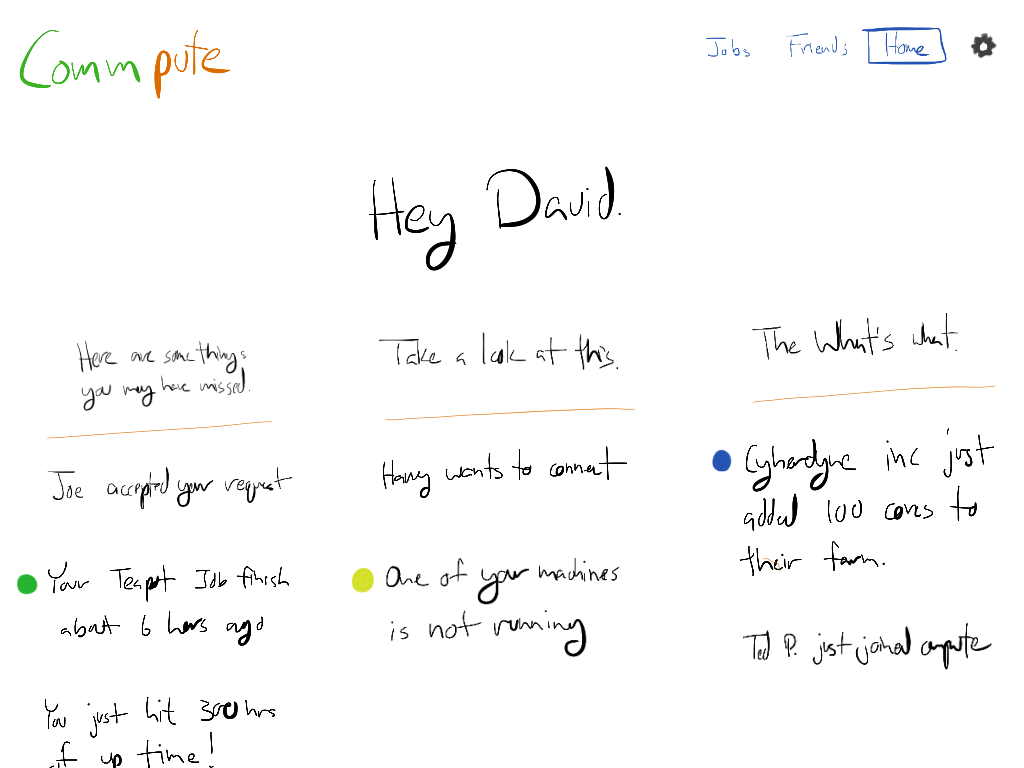 Commpute
Jobs Friends Home
Hey David.
Here are some things
you may have missed.
Joe accepted your request
Your Teapot Job finish
about 6 hours ago
You just hit 300 hrs
of up time!
Take a look at this.
Harry wants to connect
One of your machines
is not running
The What's what.
Cyberdyne inc just
added 100 cores to
their farm.
Ted P. just joined compute